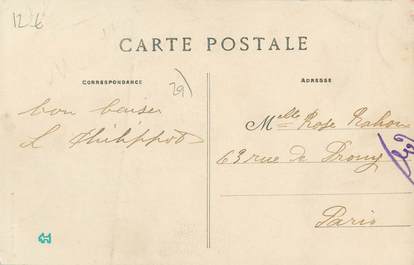 12.6
CARTE POSTALE
CORRESPONDANCE
ADRESSE
29
bon baiser
L Philippot
Melle Rose Nahon
63 rue de Prony
Paris